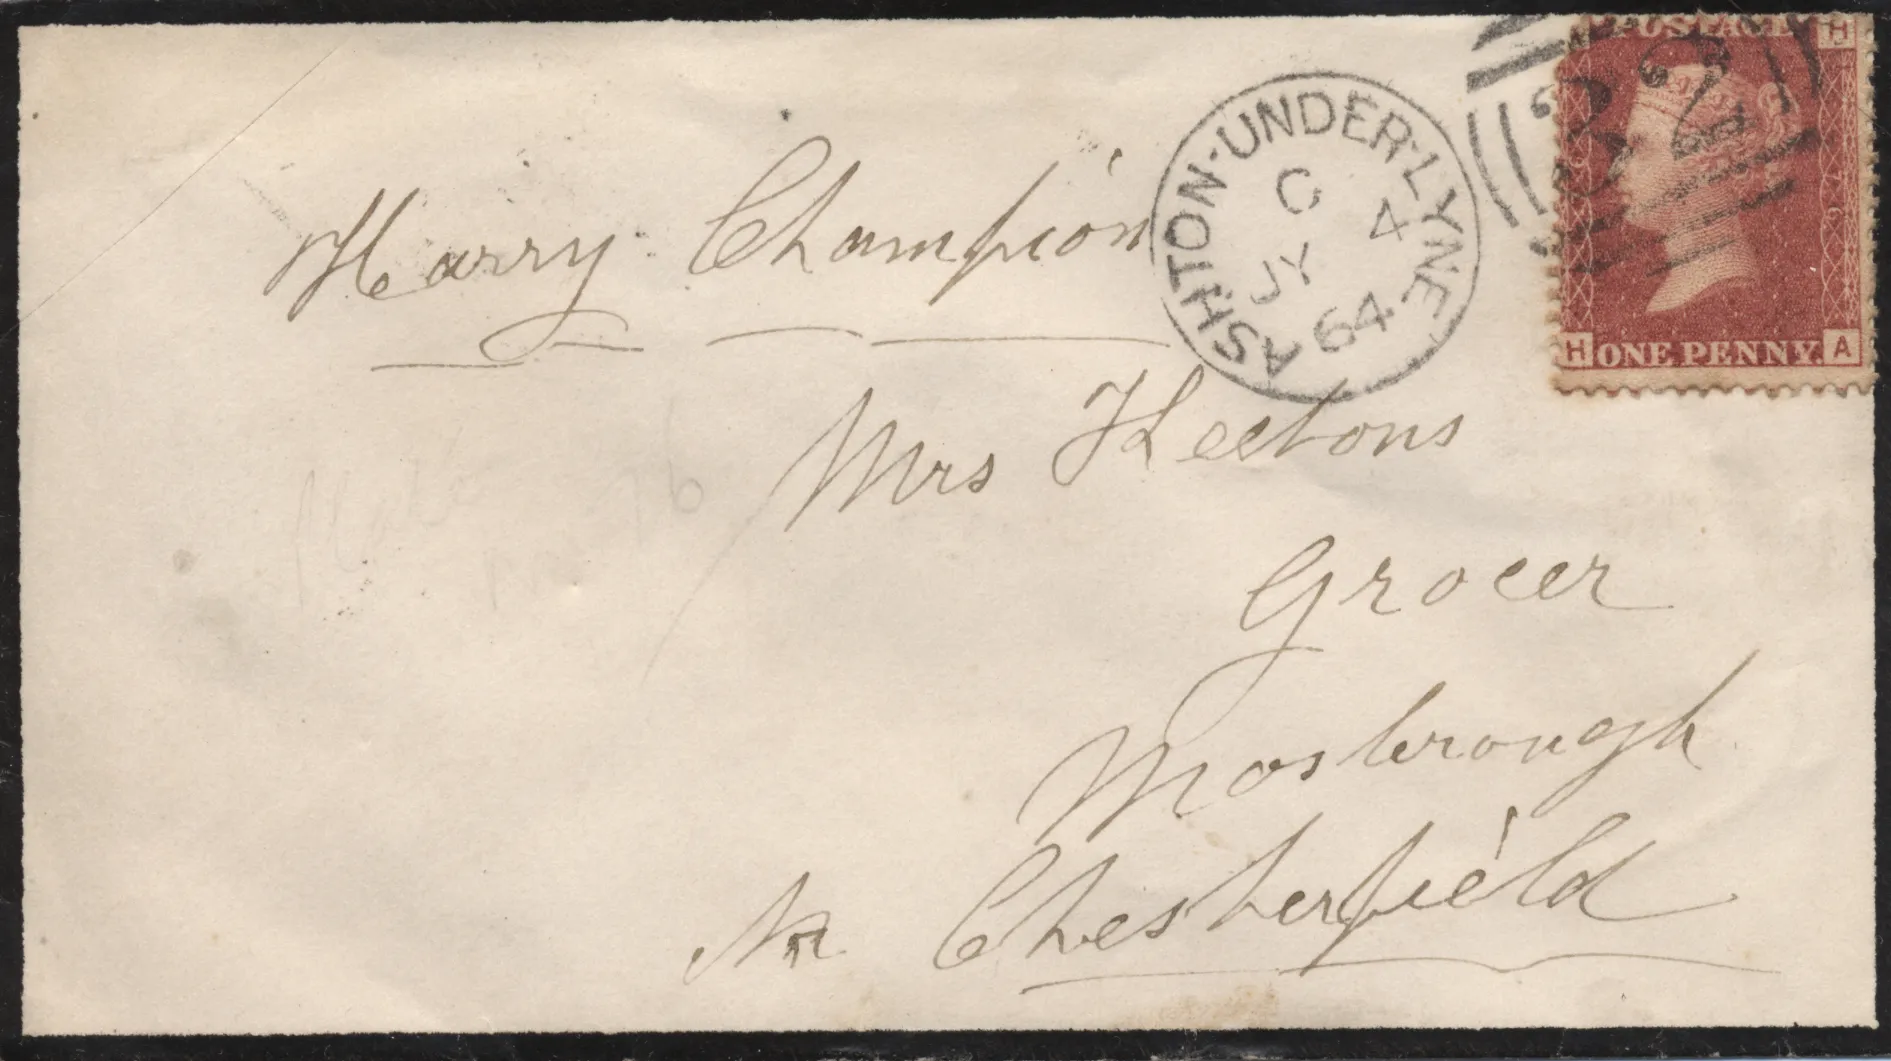 POSTAGE H
32
ASHTON-UNDER-LYNE
C
JY 4
64
H ONE PENNY. A
Harry Champion
Mrs Keetons
Grocer
Mosbrough
Nr Chesterfield